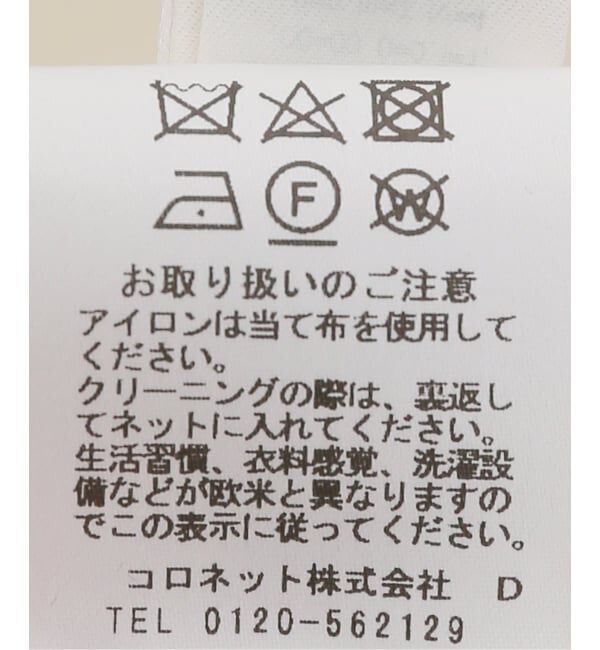 F W
お取り扱いのご注意
アイロンは当て布を使用して
ください。
クリーニングの際は、裏返し
てネットに入れてください。
生活習慣、衣料感覚、洗濯設
備などが欧米と異なりますの
でこの表示に従ってください。
コロネット株式会社 D
TEL 0120-562129